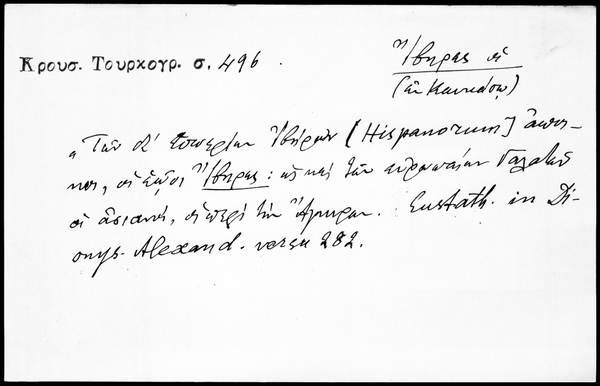 Κρουσ. Τουρκογρ. σ. 496.
Ἴβηρες οἱ
(ἐν Καυκάσῳ)
„Τῶν δ' ἑσπερίων Ἰβήρων [Hispanorum] ἄποι-
κοι, οἱ ἑῷοι Ἴβηρες: ὡς καὶ τῶν εὐρωπαίων Γαλατῶν
οἱ ἀσιανοὶ, οἱ περὶ τὴν Ἄγκυραν. Eustath. in Di-
onys. Alexand. versu 282.